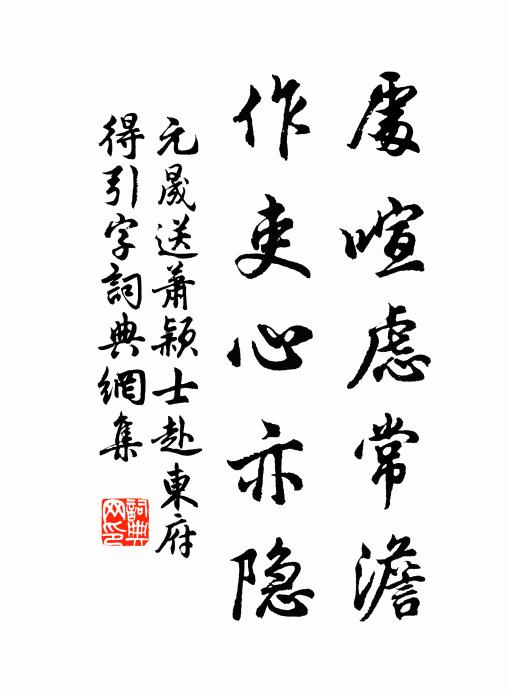 處喧慮常澹
作吏心亦隐
元晟送蕭穎士赴東府
得引字詞典網集
詞典网印